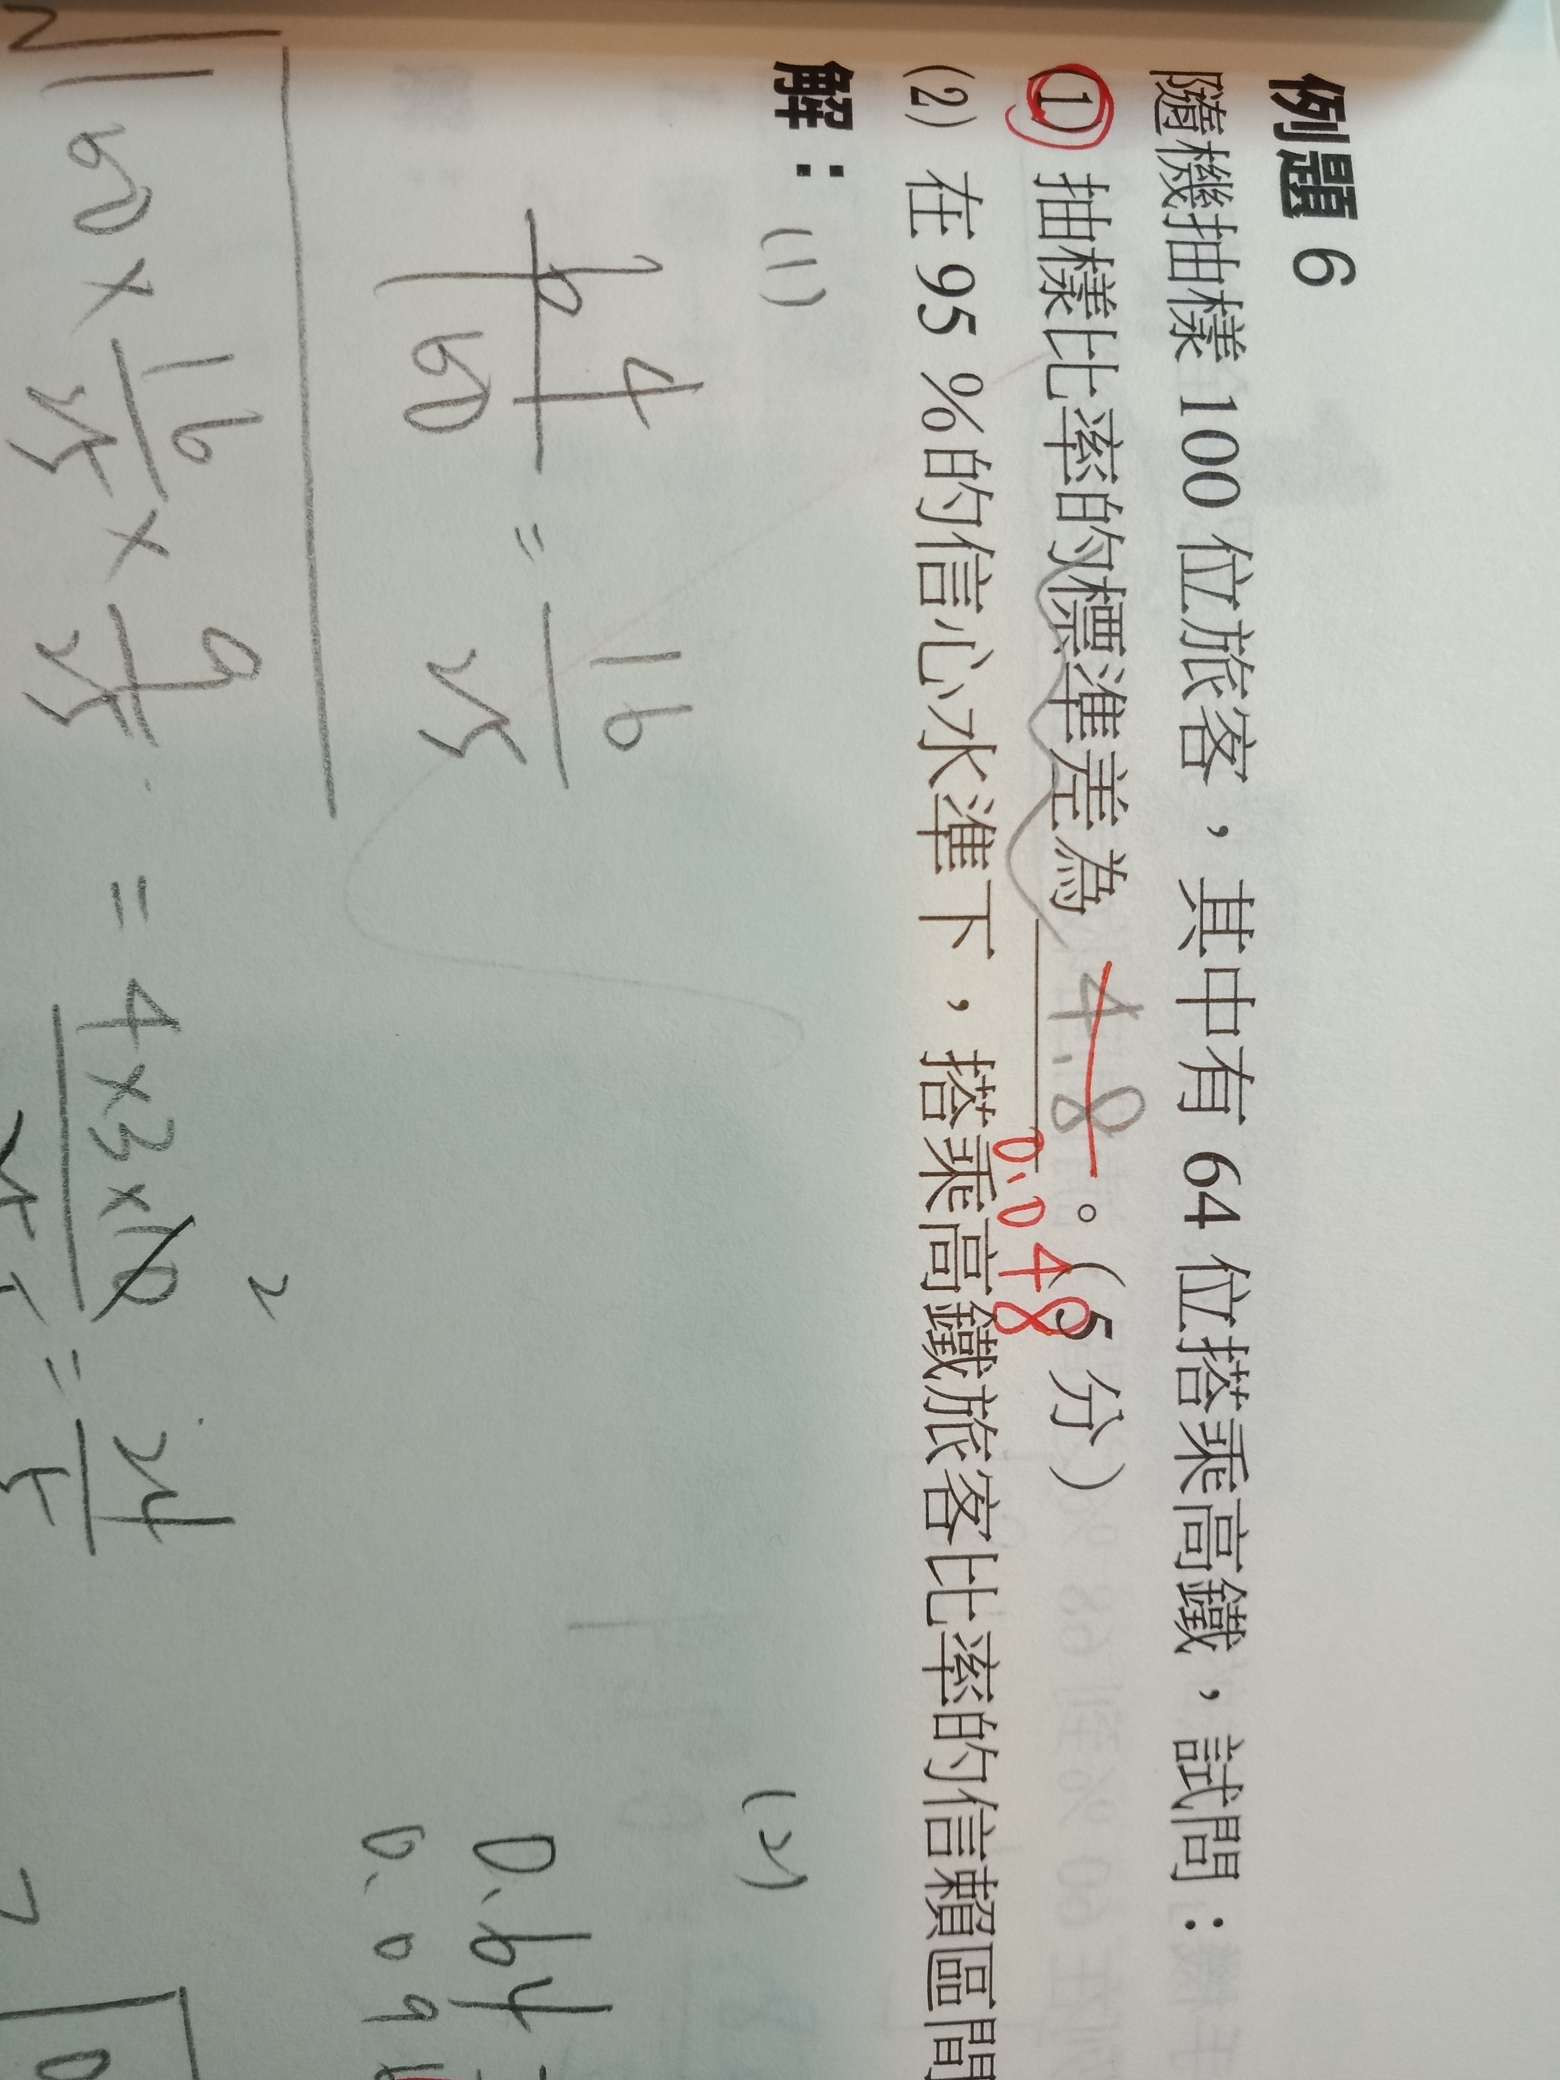 例題 6
隨機抽樣 100 位旅客，其中有 64 位搭乘高鐵，試問：
(1) 抽樣比率的標準差為 4.8 。（5 分）
0.048
(2) 在 95 %的信心水準下，搭乘高鐵旅客比率的信賴區間
解：(1)
64/100 = 16/25
√100 × 16/25 × 9/25 = 4×3×10/25 = 24/5
2
(2)
0.64
0.09